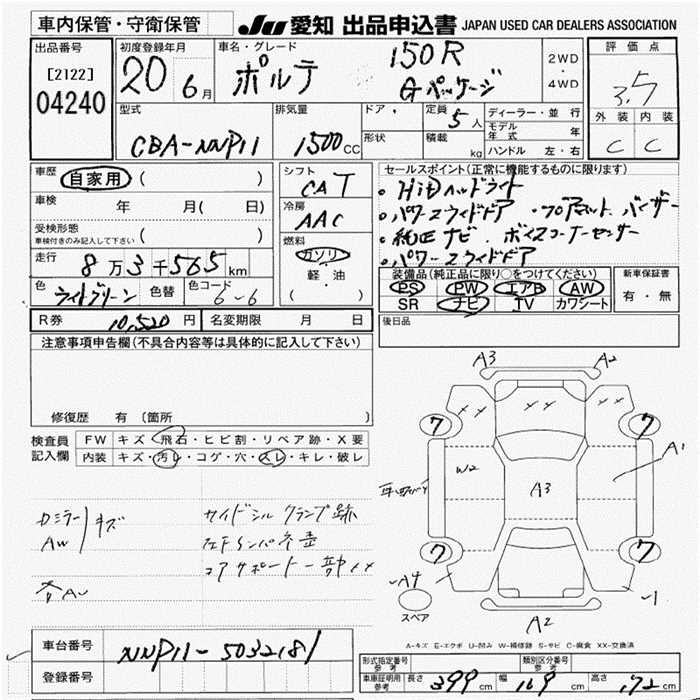 車内保管・守衛保管 JU 愛知 出品申込書 JAPAN USED CAR DEALERS ASSOCIATION
出品番号 [2122] 04240
初度登録年月 20 6月
車名・グレード ポルテ 150R Gパッケージ
2WD・4WD
評価点 3.5
外装 内装
C C
型式 CBA-NNP11
排気量 1500cc
ドア 形状
定員 5人
積載 kg
ディーラー・並行
モデル年式 年
ハンドル 左・右
車歴 自家用 ( )
車検 年 月( 日)
受検形態 車検付きのみ記入して下さい ( )
走行 8万3千565km
色 ライトグリーン 色替 色コード 6-6
シフト CAT
冷房 AAC
燃料 ガソリン 軽・油 ( )
セールスポイント(正常に機能するものに限ります)
・HiDヘッドライト
・純正ナビ
装備品(純正品に限り○をつけてください)
PS PW エアB AW
SR ナビ TV カワシート
新車保証書 有・無
R券 10,520円 名変期限 月 日
後日品
注意事項申告欄(不具合内容等は具体的に記入して下さい)
修復歴 有 〔箇所
検査員記入欄
FW キズ・飛石・ヒビ割・リペア跡・X要
内装 キズ・汚レ・コゲ・穴・スレ・キレ・破レ
A3 A2
7 7
W2 A3 A1
7 7
A4 スペア
A2
キズ
AW
サイドシル クランプ跡
コアサポート一部
A-キズ E-エクボ U-凹み W-補修跡 S-サビ C-腐食 XX-交換済
車台番号 NNP11-5032181
登録番号
形式指定番号 参考 類別区分番号 参考
車庫証明用 参考 長さ 399cm 幅 169cm 高さ 172cm